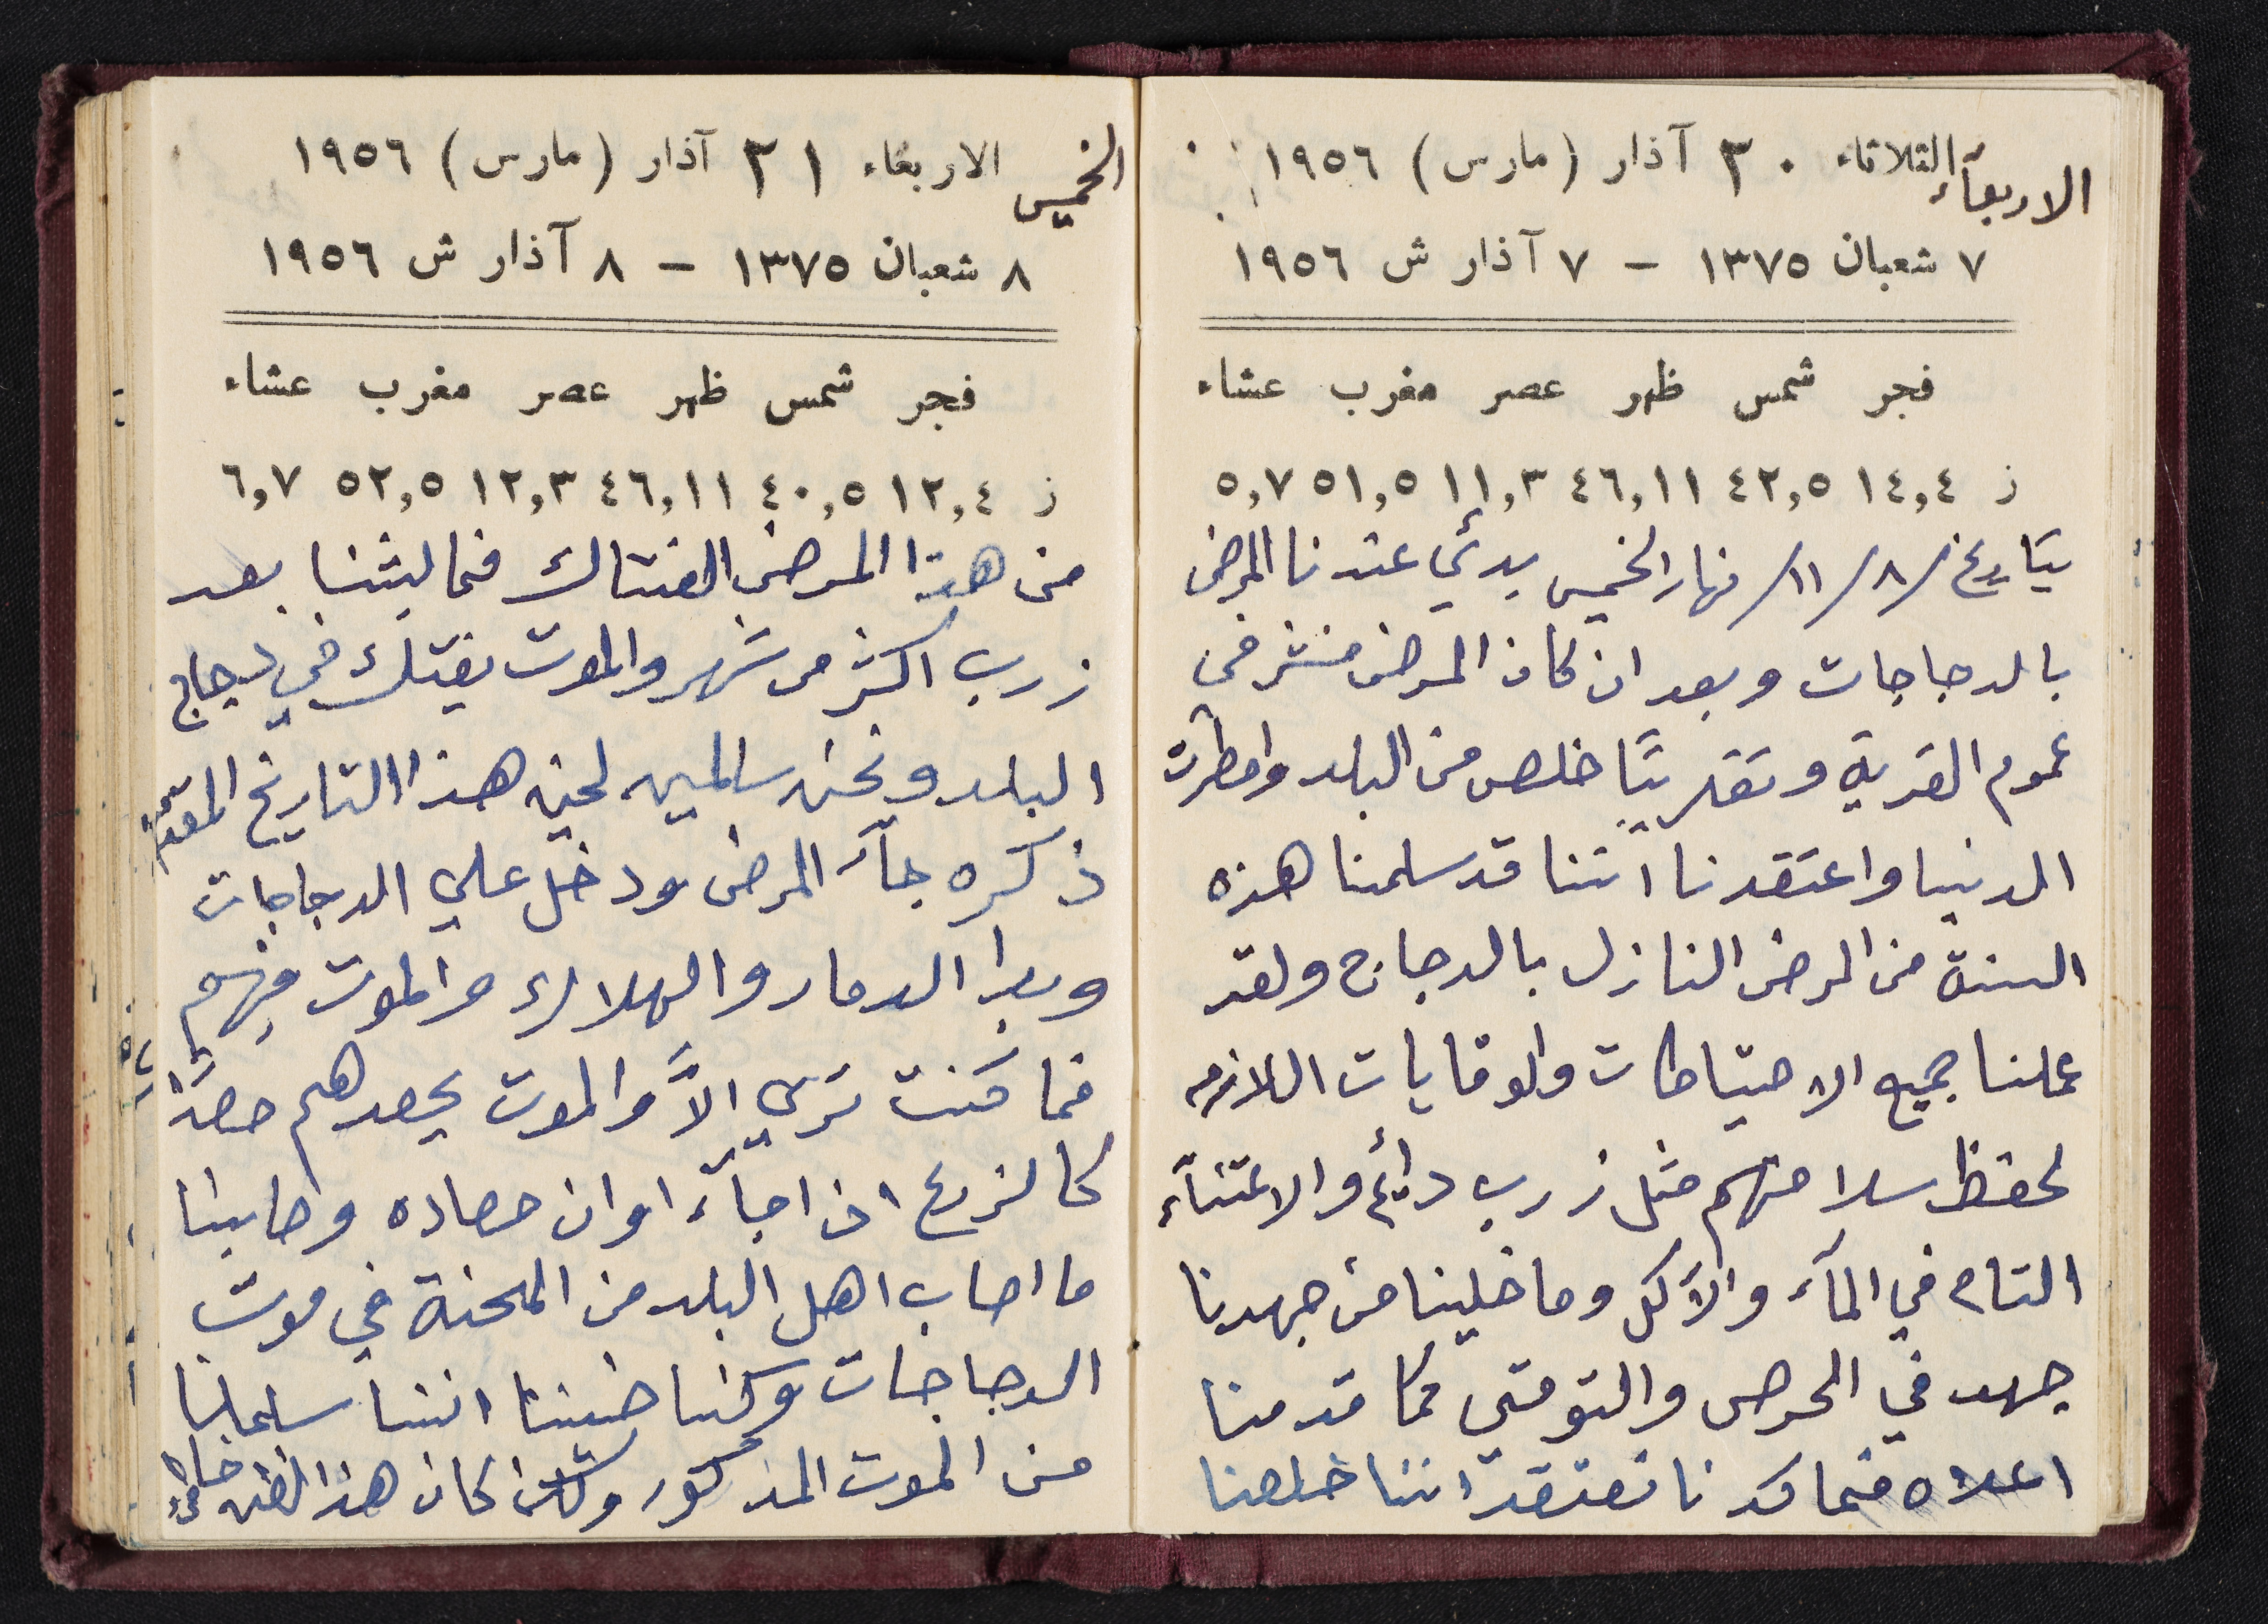 الاربعآء الثلاثاء ٣٠ آذار (مارس) ١٩٥٦
٧ شعبان ١٣٧٥ – ٧ آذار ش ١٩٥٦
فجر شمس ظهر عصر مغرب عشاء
ز ١٤,٤ ٤٢,٥ ٤٦,١١ ١١,٣ ٥١,٥ ٥,٧
بتاريخ /٨/١١/ نهار الخميس بدئي عندنا المرض
بالدجاجات وبعد ان كان المرض منشر في
عموم القرية وتقريبًا خلص من البلد وامطرت
الدنيا واعتقدنا اننا قد سلمنا هذه
السنة من المرض النازل بالدجاج ولقد
عملنا جميع الاحتياطات والوقايات اللازمه
لحفظ سلامتهم مثل زرب دائم والاعتنآء
التام في المآء والأكل وما خلينا من جهدنا
جهد في الحرص والتوقي مما قدمنا
اعلاه فما كدنا نعتقد اننا خلصنا
الخميس الاربعاء ٣١ آذار (مارس) ١٩٥٦
٨ شعبان ١٣٧٥ – ٨ آذار ش ١٩٥٦
فجر شمس ظهر عصر مغرب عشاء
ز ١٢,٤ ٤٠,٥ ٤٦,١١ ١٢,٣ ٥٢,٥ ٦,٧
من هذا المرض الفتاك فما لبثنا بعد
زرب اكثر من شهر والموت يفتك في دجاج
البلد ونحن سالمين لحين هذا التاريخ المقدم
ذكره جآء المرض ودخل علي الدجاجات
وبدا الدمار والهلاك والموت فيهم
فما كنت تري الاَّ والموت يحصدهم حصدًا
كالزرع اذا جآء اوان حصاده وصابنا
ما اصاب اهل البلد من المحنة في موت
الدجاجات وكنا ضنينا اننا سلمانا
من الموت المذكور ولكن كان هذا الضن خاطئ